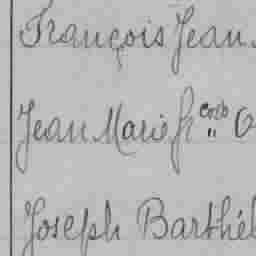 François Jean
Jean Marie
Joseph Barthél